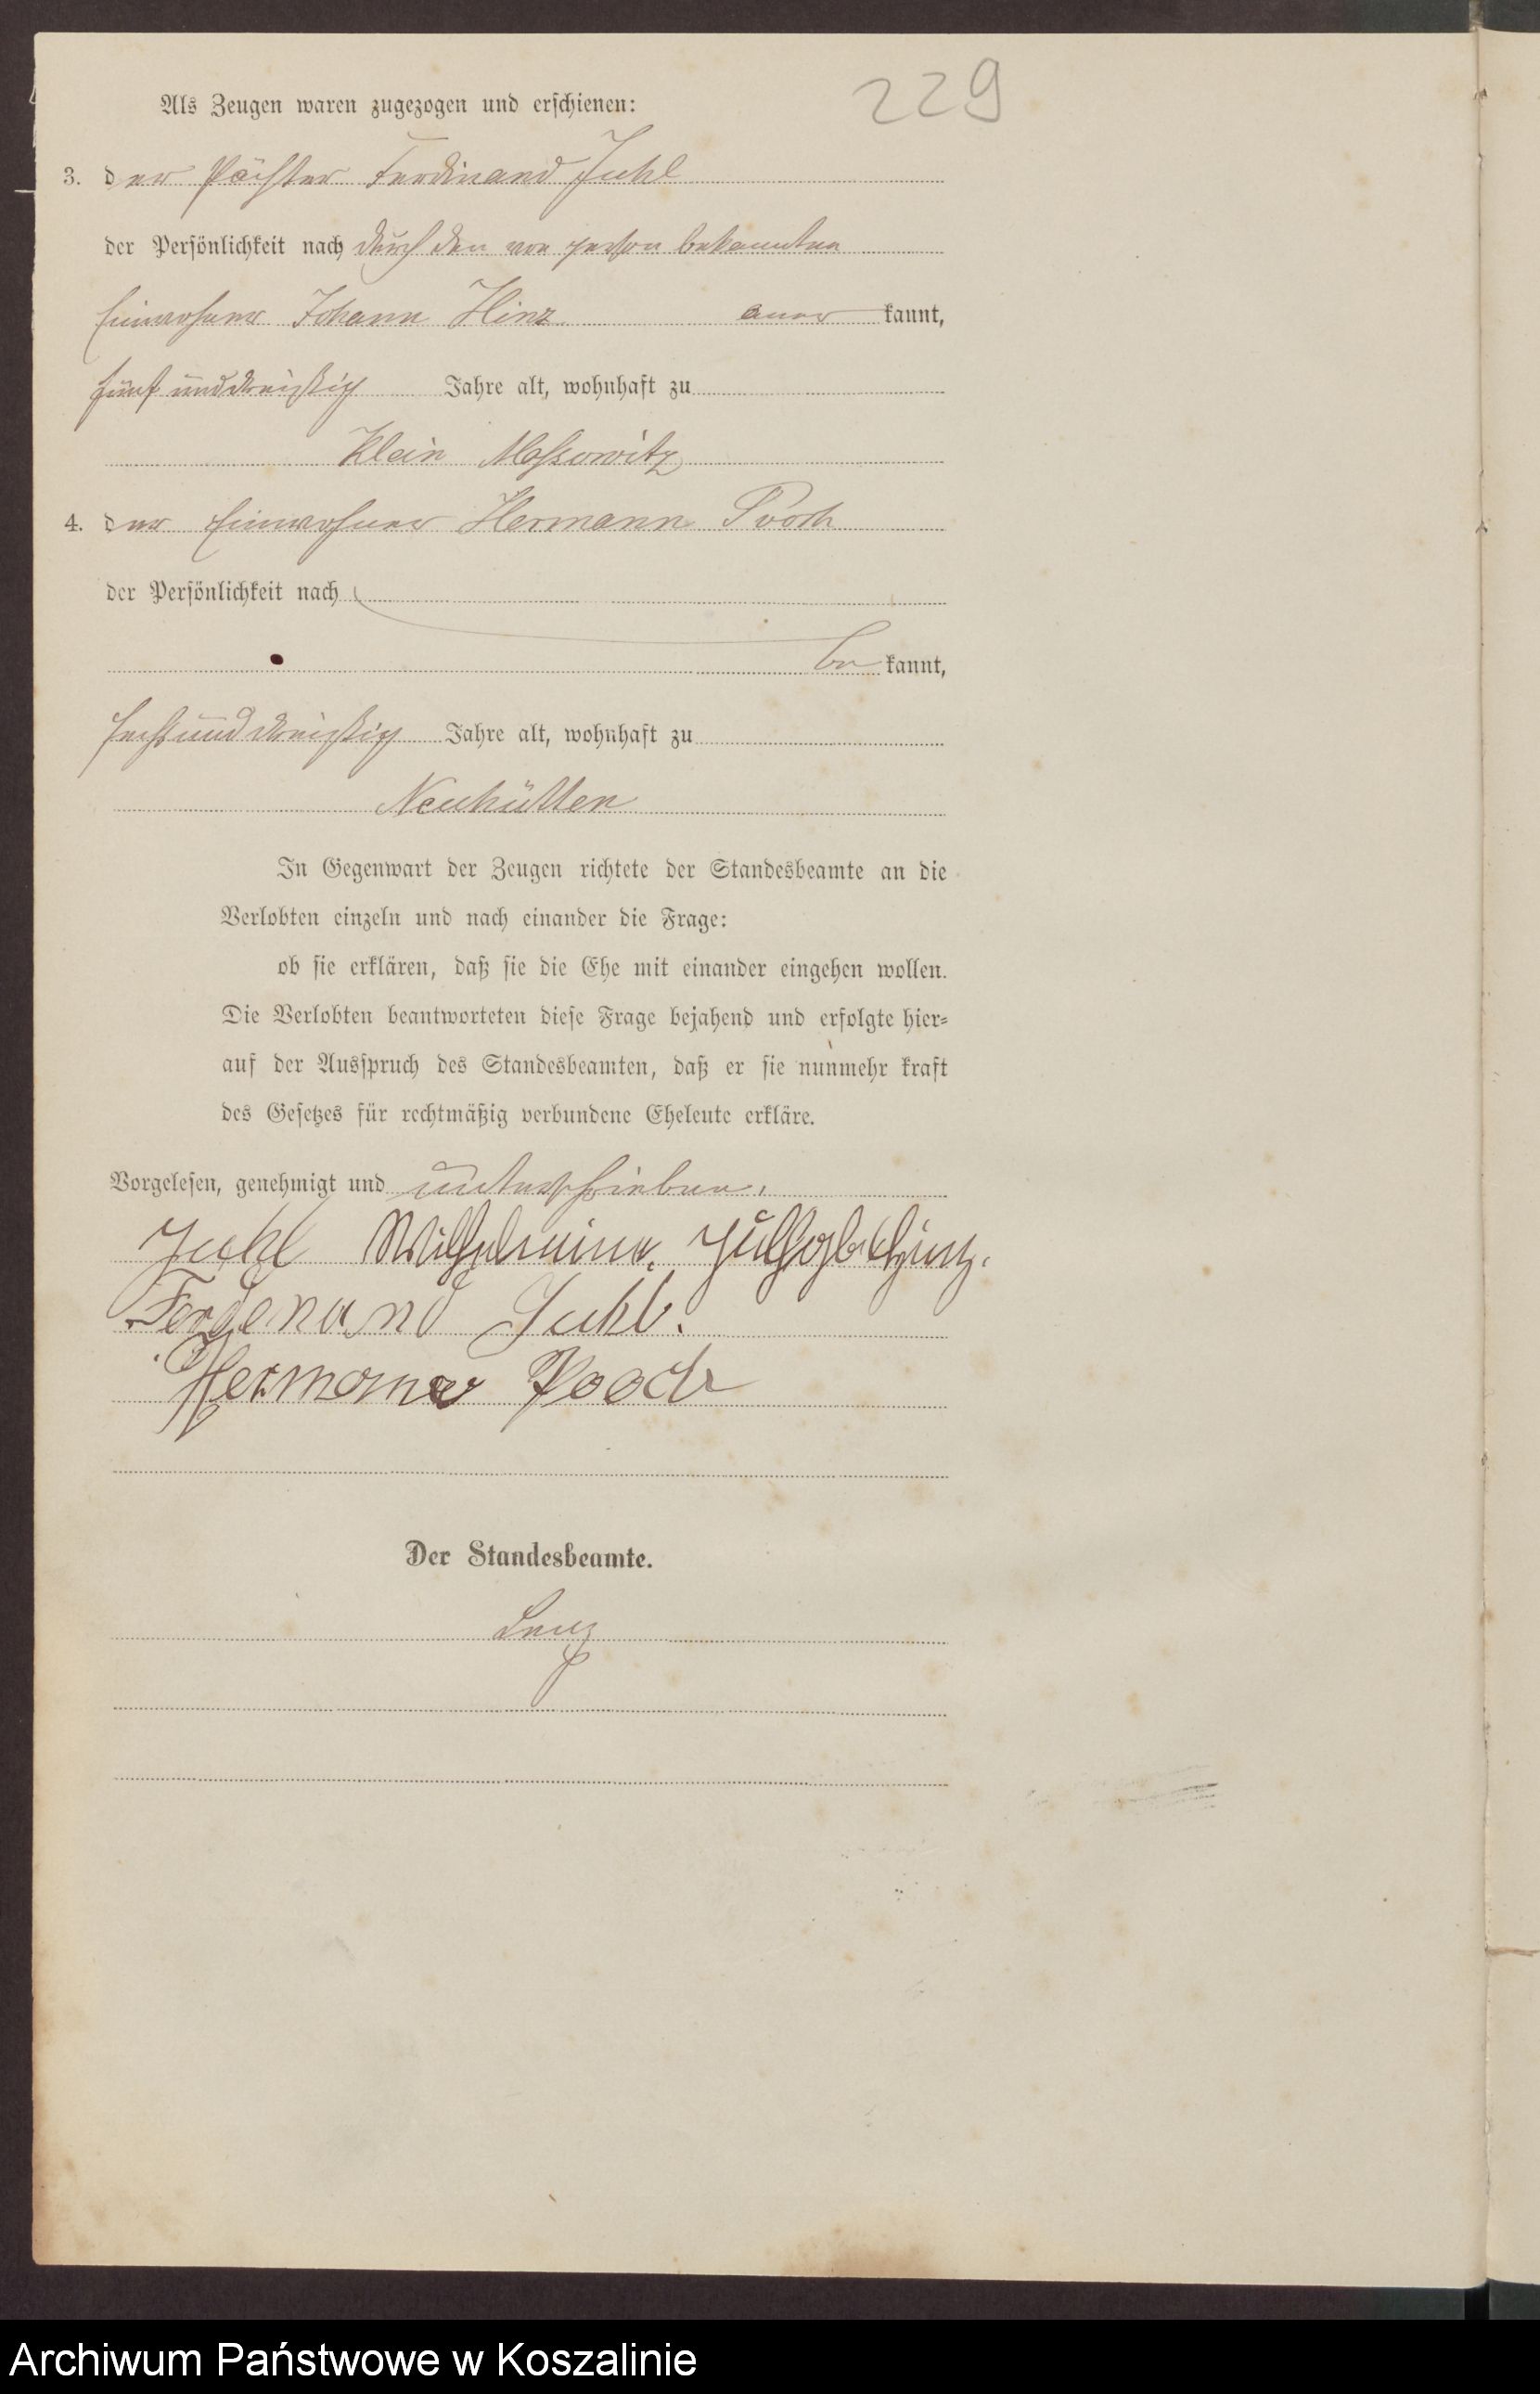 229
Als Zeugen waren zugezogen und erschienen:
3. der Pächter Ferdinand Juhl
der Persönlichkeit nach durch den von Person bekannten
Einwohner Johann Hinz aner kannt,
fünf und dreißig Jahre alt, wohnhaft zu
Klein Massowitz
4. der Einwohner Hermann Pooch
der Persönlichkeit nach
be kannt,
sechs und dreißig Jahre alt, wohnhaft zu
Neuhütten
In Gegenwart der Zeugen richtete der Standesbeamte an die
Verlobten einzeln und nach einander die Frage:
ob sie erklären, daß sie die Ehe mit einander eingehen wollen.
Die Verlobten beantworteten diese Frage bejahend und erfolgte hier-
auf der Ausspruch des Standesbeamten, daß er sie nunmehr kraft
des Gesetzes für rechtmäßig verbundene Eheleute erkläre.
Vorgelesen, genehmigt und unterschrieben.
Juhl Wilhelmine Juhl geb. Hinz.
Ferdenand Juhl.
Hermann Pooch
Der Standesbeamte.
Lenz
Archiwum Państwowe w Koszalinie